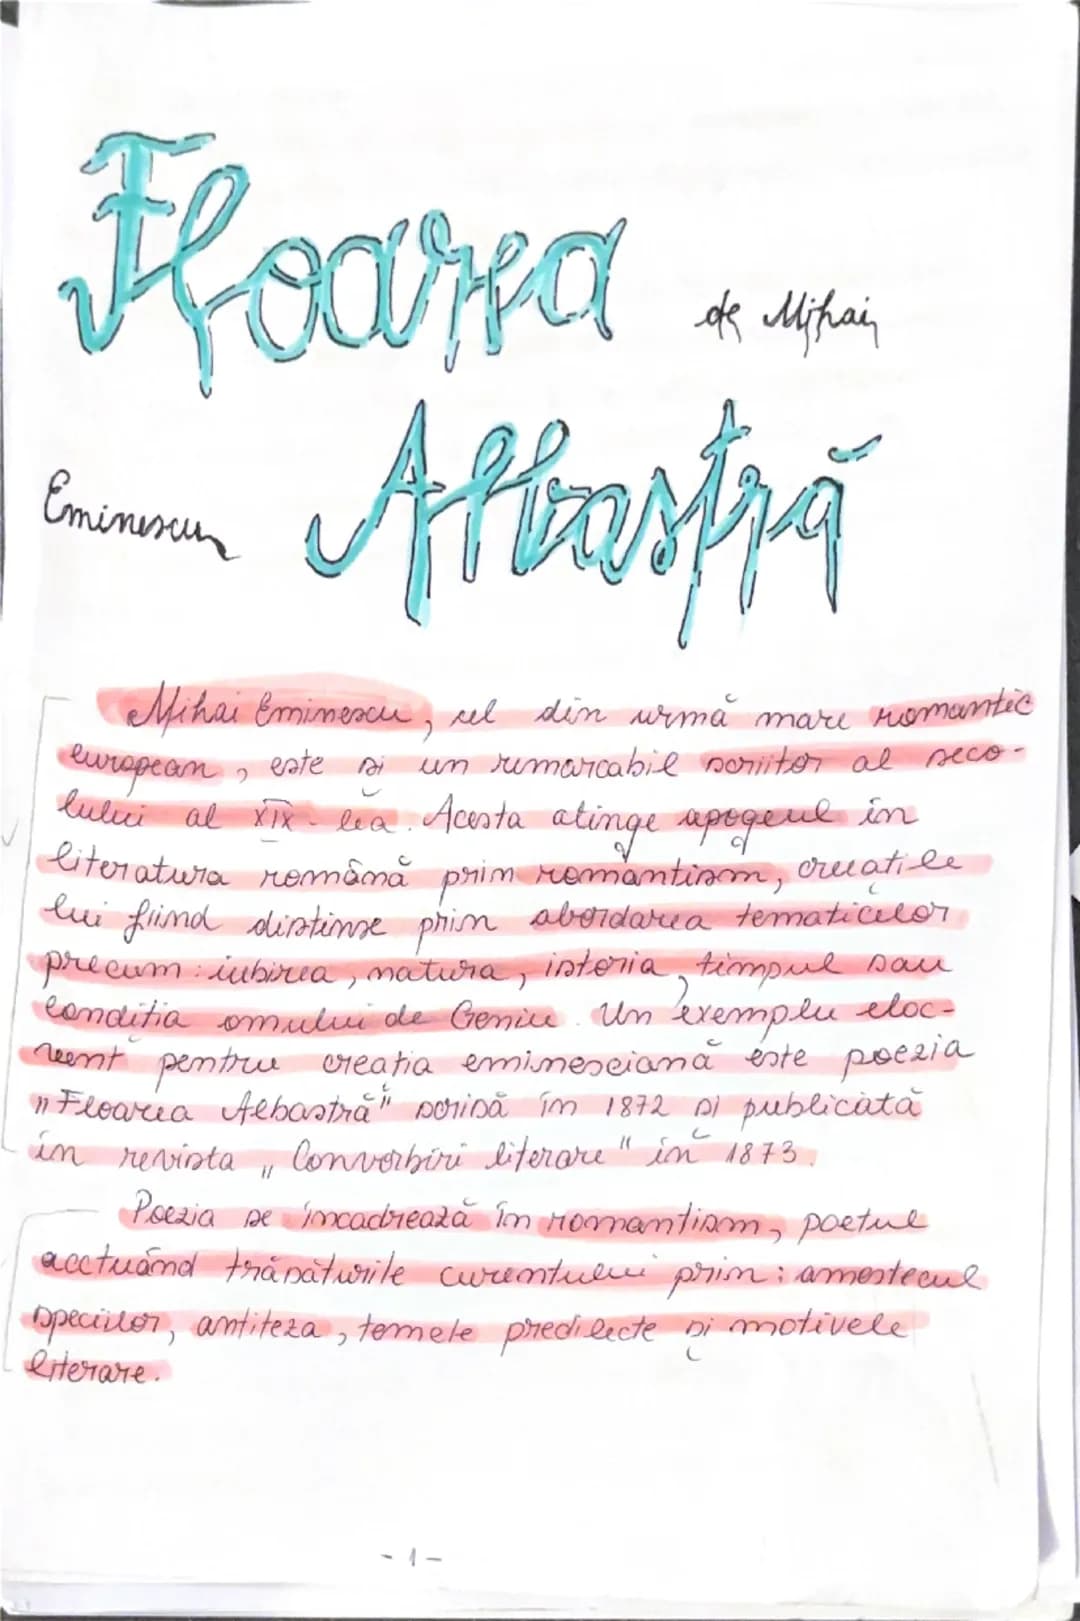 Floarea
de Mihai
Albastră
Eminescu
Mihai Eminescu, cel din urmă mare romantic
european, este și un remarcabil scriitor al seco-
lului al XIX-lea. Acesta atinge apogeul în
literatura română prin romantism, creațiile
lui fiind distinse prin abordarea tematicilor
precum: iubirea, natura, istoria, timpul sau
condiția omului de Geniu. Un exemplu eloc-
vent pentru creația eminesciană este poezia
„Floarea Albastră" scrisă în 1872 și publicată
în revista „Convorbiri literare" în 1873.
Poezia se încadrează în romantism, poetul
acctuând trăsăturile curentului prin: amestecul
speciilor, antiteza, temele predilecte și motivele
literare.
-1-